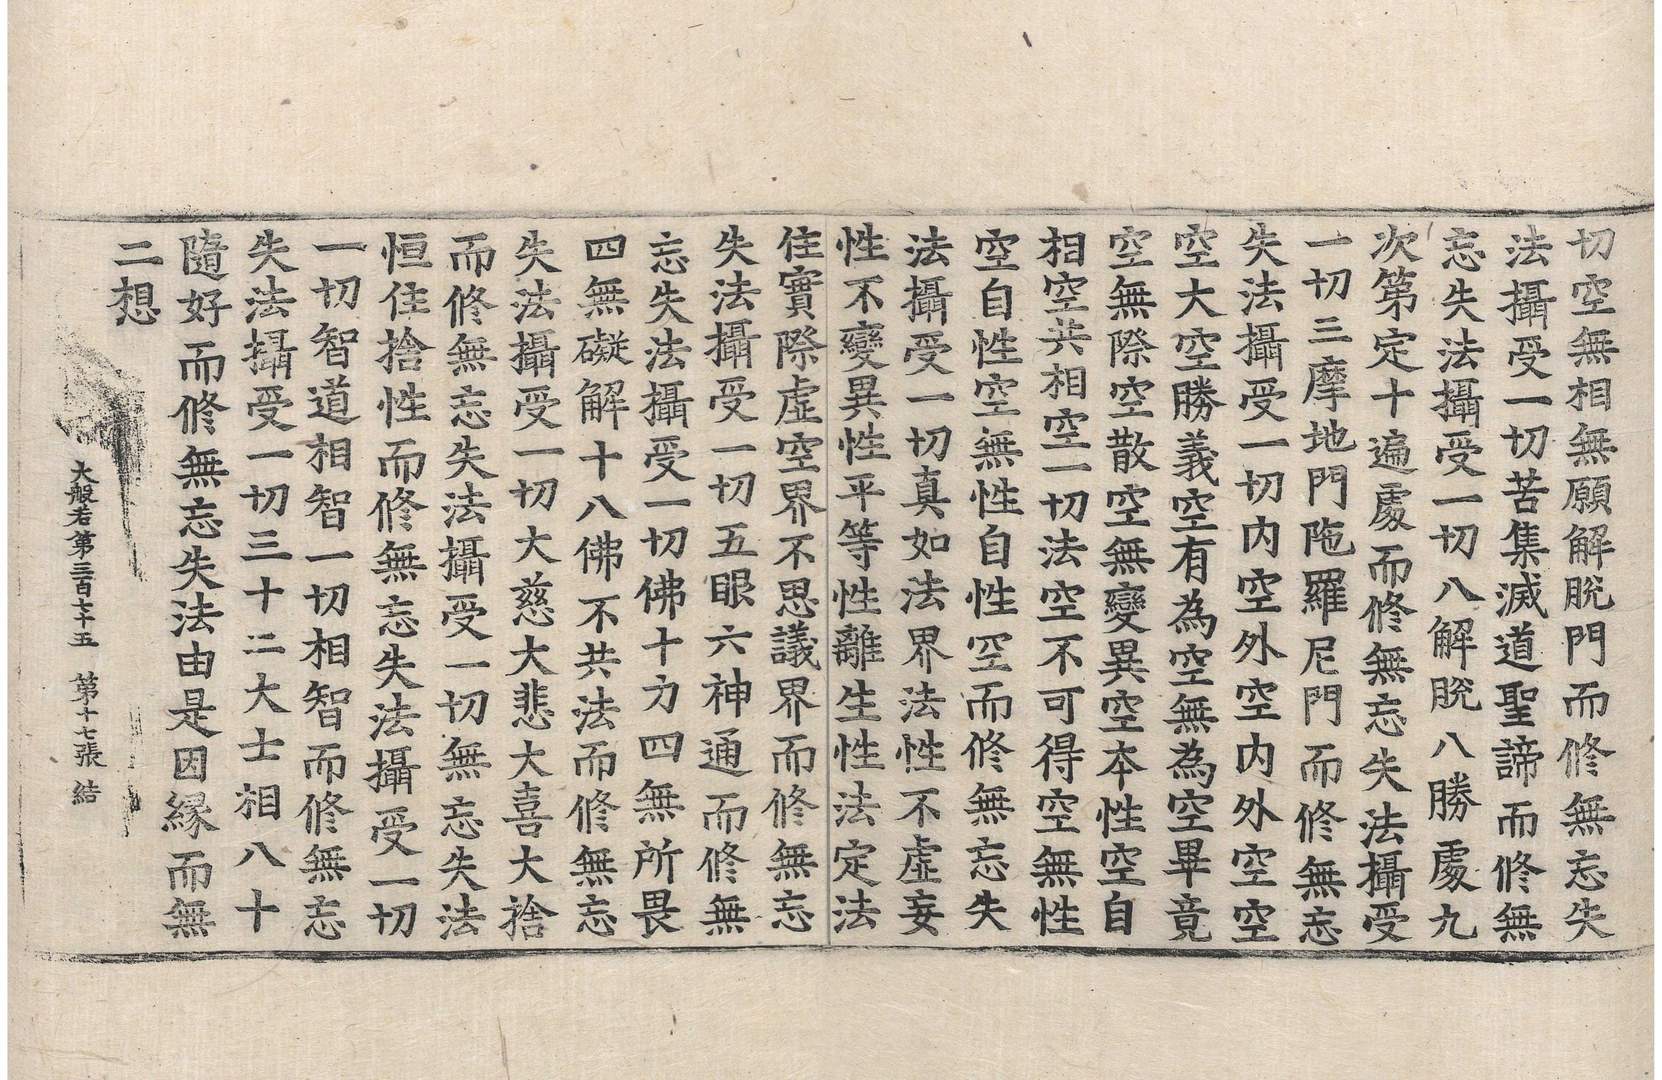 切空無相無願解脫門而修無忘失
法攝受一切苦集滅道聖諦而修無
忘失法攝受一切八解脫八勝處九
次第定十遍處而修無忘失法攝受
一切三摩地門陁羅尼門而修無忘
失法攝受一切內空外空內外空空
空大空勝義空有為空無為空畢竟
空無際空散空無變異空本性空自
相空共相空一切法空不可得空無性
空自性空無性自性空而修無忘失
法攝受一切真如法界法性不虛妄
性不變異性平等性離生性法定法
住實際虛空界不思議界而修無忘
失法攝受一切五眼六神通而修無
忘失法攝受一切佛十力四無所畏
四無礙解十八佛不共法而修無忘
失法攝受一切大慈大悲大喜大捨
而修無忘失法攝受一切無忘失法
恒住捨性而修無忘失法攝受一切
一切智道相智一切相智而修無忘
失法攝受一切三十二大士相八十
隨好而修無忘失法由是因緣而無
二想
大般若第三百七十五 第十七張 結